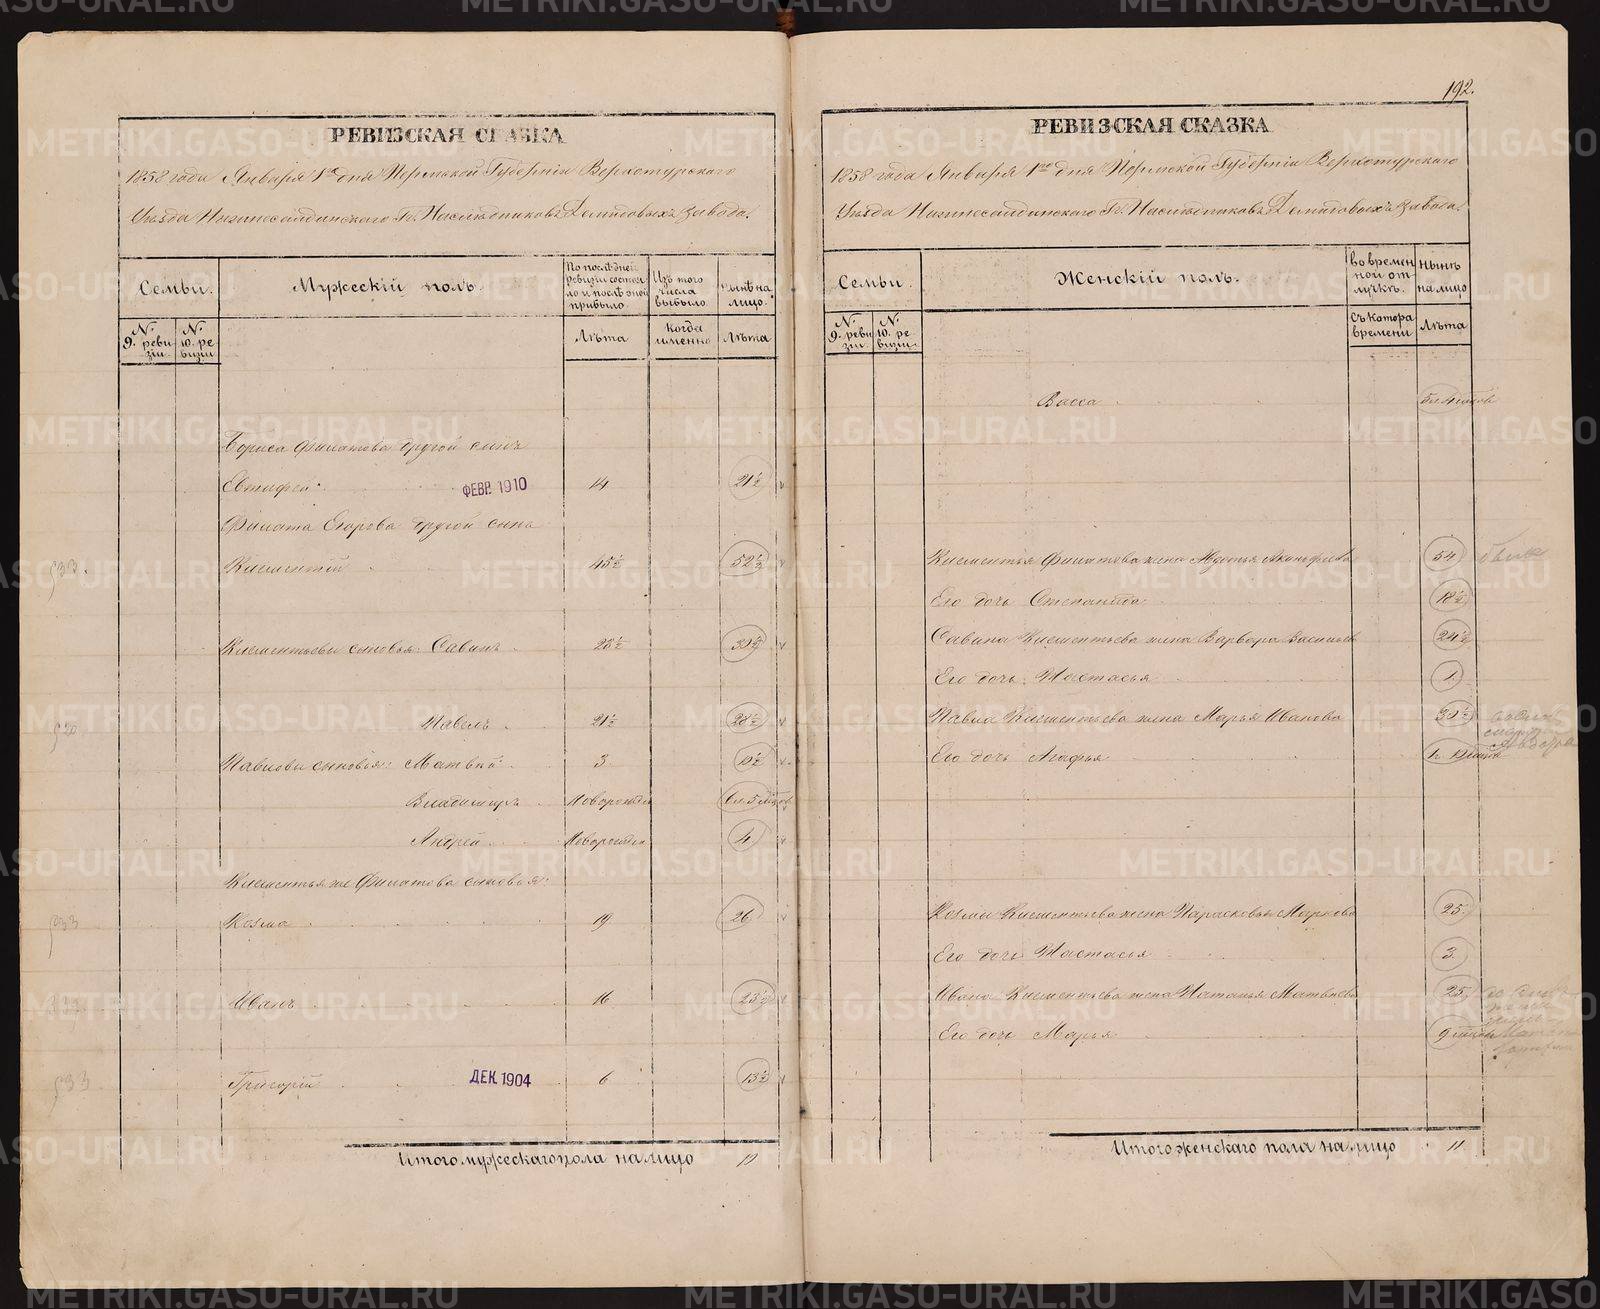 192.
РЕВИЗСКАЯ СКАЗКА
1858 года Января 1го дня Пермской Губерніи Верхотурскаго
Уѣзда Нижнесалдинскаго Гг. Наслѣдниковъ Демидовыхъ Завода.
Семьи.
Мужескій полъ.
По послѣдней ревизіи состояло и послѣ оной прибыло.
Изъ того числа выбыло.
Нынѣ на лицо.
N. 9. ревизіи.
N. 10. ревизіи
Лѣта
Когда именно
Лѣта
Бориса Филатова другой сынъ
Евтифей 14 21½
ФЕВР. 1910
Филата Егорова другой сынъ
533. Клементій 45½ 52½
Клементьевы сыновья: Савинъ 23½ 30½
Павелъ 21½ 28½
Павловы сыновья: Матвѣй 3 10½
Владимиръ Новорожден
Андрей Новорожден 4
Клементья же Филатова сыновья:
533 Козма 19 26
Иванъ 16 23½
533 Григорій 6 13½
ДЕК. 1904
Итого мужескаго пола на лицо 10
РЕВИЗСКАЯ СКАЗКА
1858 года Января 1го дня Пермской Губерніи Верхотурскаго
Уѣзда Нижнесалдинскаго Гг. Наслѣдниковъ Демидовыхъ Завода.
Семьи.
Женскій полъ.
Во временной отлучкѣ.
Нынѣ на лицо
N. 9. ревизіи.
N. 10. ревизіи.
Съ котора времени
Лѣта
Васса
Клементья Филатова жена Авдотья 54
Его дочь Степанида 18½
Савина Клементьева жена Варвара Васильев 24½
Его дочь Настасья 1
Павла Клементьева жена Марья Иванова 30½
Его дочь Агафья
Козмы Клементьева жена Парасковья Маркова 25
Его дочь Настасья 3
Ивана Клементьева жена Наталья Матвѣева 25
Его дочь Марья
Итого женскаго пола на лицо 11
METRIKI.GASO-URAL.RU